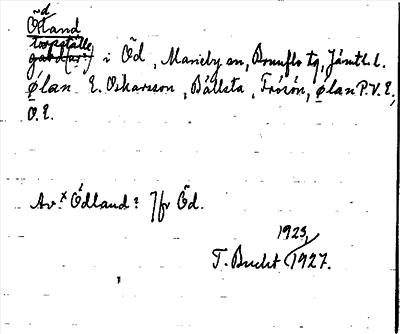 Ödland
torpställe
gård(ar) i Öd, Marieby sn, Brunflo tg, Jämtl. l.
ølan E. Oskarsson, Bällsta, Frösön, ølan P.V.E.,
O.E.
Av.x Ödland? Jfr Öd.
1925,
T. Bucht 1927.